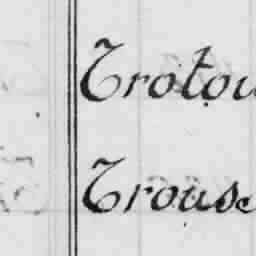 Trotou
Trouse